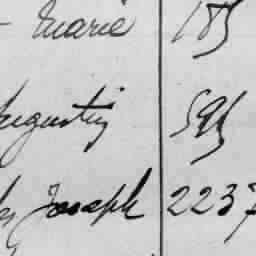 Marie 185
Augustin 595
Joseph 2237